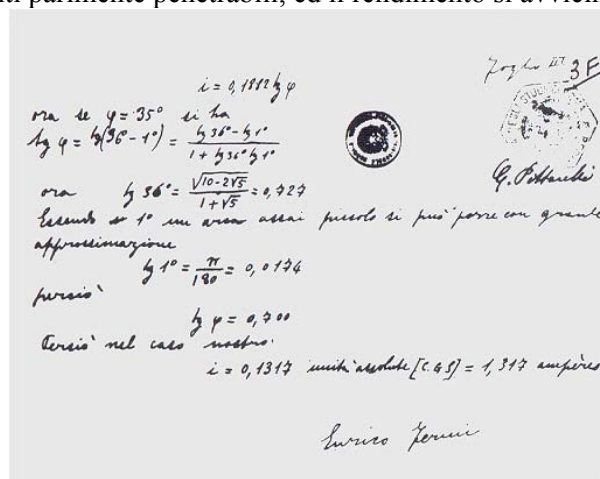 parimente penetrabili, ed il rendimento si avvien
Foglio III 3F
i = 0,1882 tg φ
ora se φ = 35° si ha
tg φ = tg(36° - 1°) = (tg 36° - tg 1°) / (1 + tg 36° tg 1°)
G. Pittarelli
ora tg 36° = √(10-2√5) / (1+√5) = 0,727
Essendo 1° un arco assai piccolo si può porre con grande
approssimazione
tg 1° = π/180 = 0,0174
perciò
tg φ = 0,700
Perciò nel caso nostro:
i = 0,1317 unità assolute [C.G.S] = 1,317 ampères
Enrico Fermi